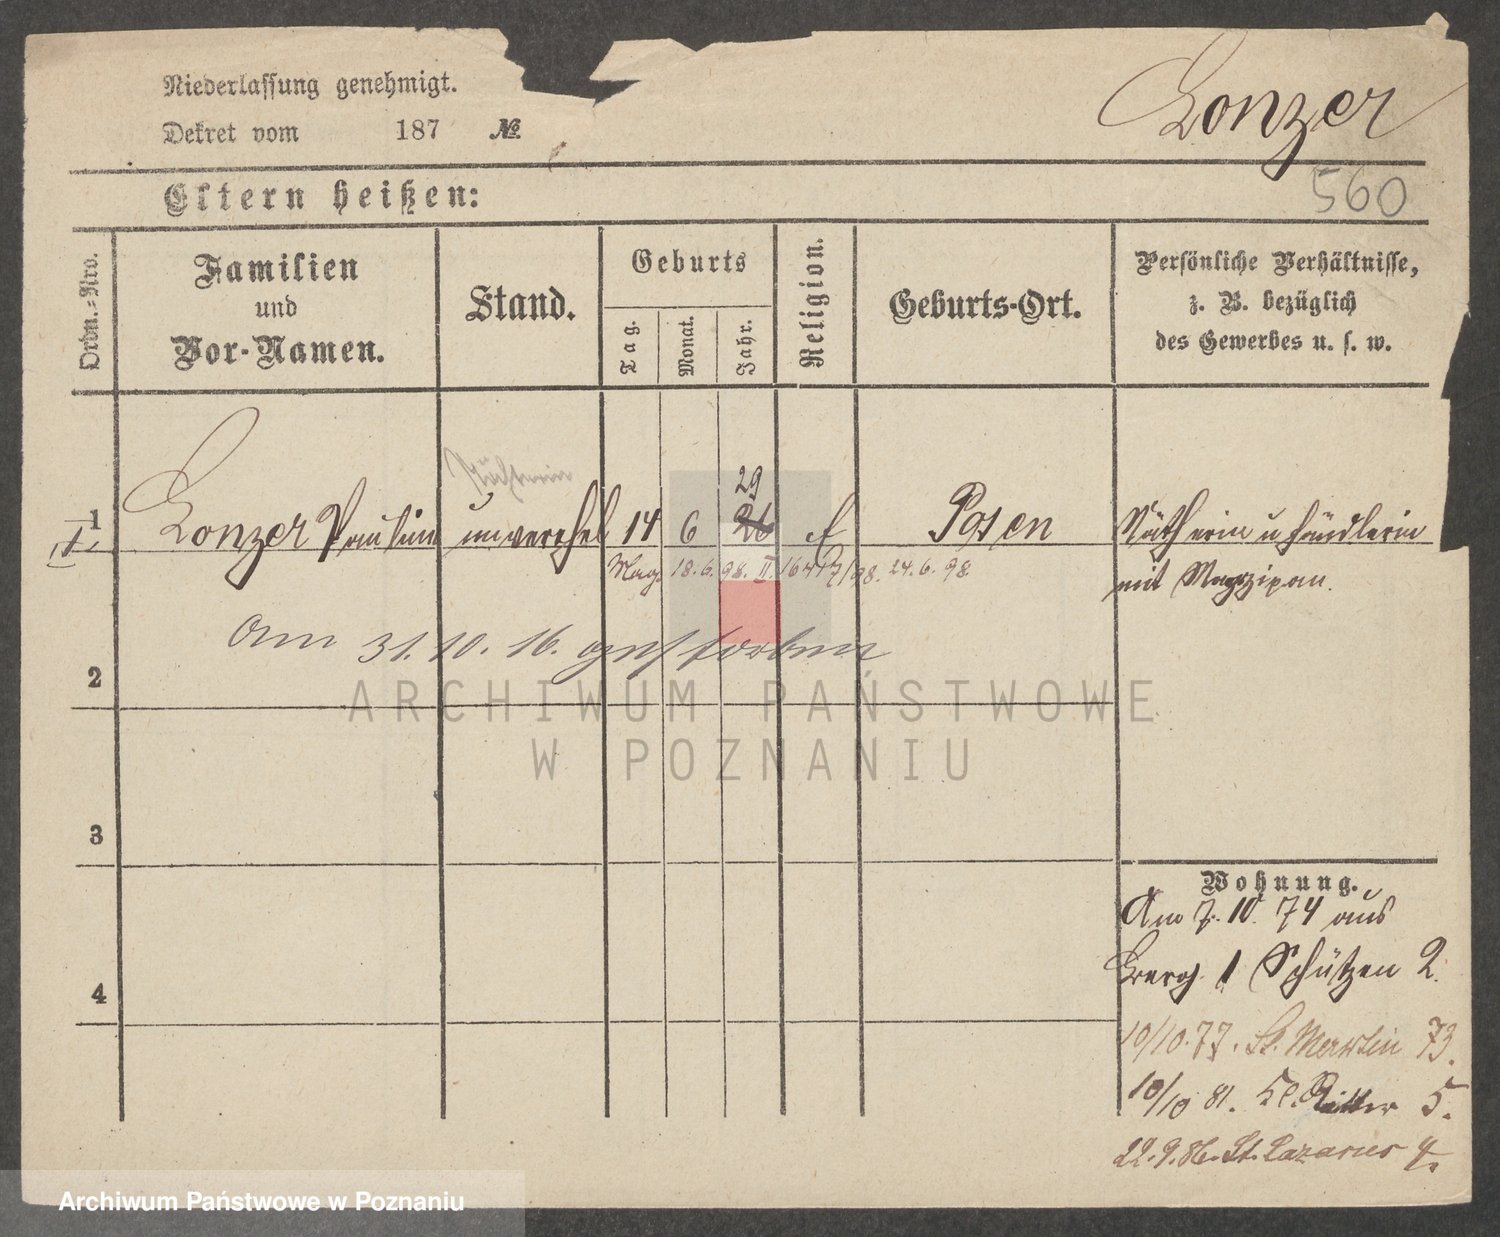 Niederlassung genehmigt.
Dekret vom 187 №
Lonzer
560
Eltern heißen:
Ordn.-Nro.
Familien
und
Vor-Namen.
Stand.
Geburts
Tag.
Monat.
Jahr.
Religion.
Geburts-Ort.
Persönliche Verhältnisse,
z. B. bezüglich
des Gewerbes u. s. w.
Nätherin
29
1 Lonzer Paulin unverehel 14 6 26 Posen Nätherin u händlerin
18.6.98. II. 24.6.98
mit Marzipan.
am 31.10.16. gestorben
2
ARCHIWUM PAŃSTWOWE
W POZNANIU
3
4
Wohnung.
Am 7. 10. 74 aus
1 Schützen 2.
10/10.77. St. Martin 73.
10/10 81. Kl. Ritter 5.
22.9.86. St. Lazarus 4.
Archiwum Państwowe w Poznaniu